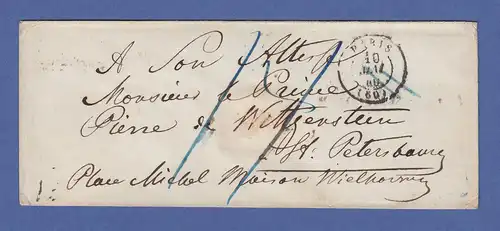 A Son Altesse
Monsieur le Prince
Pierre de Wittgenstein
à St. Petersbourg
Place Michel Maison Wielhorsky
PARIS
10
60
(60)